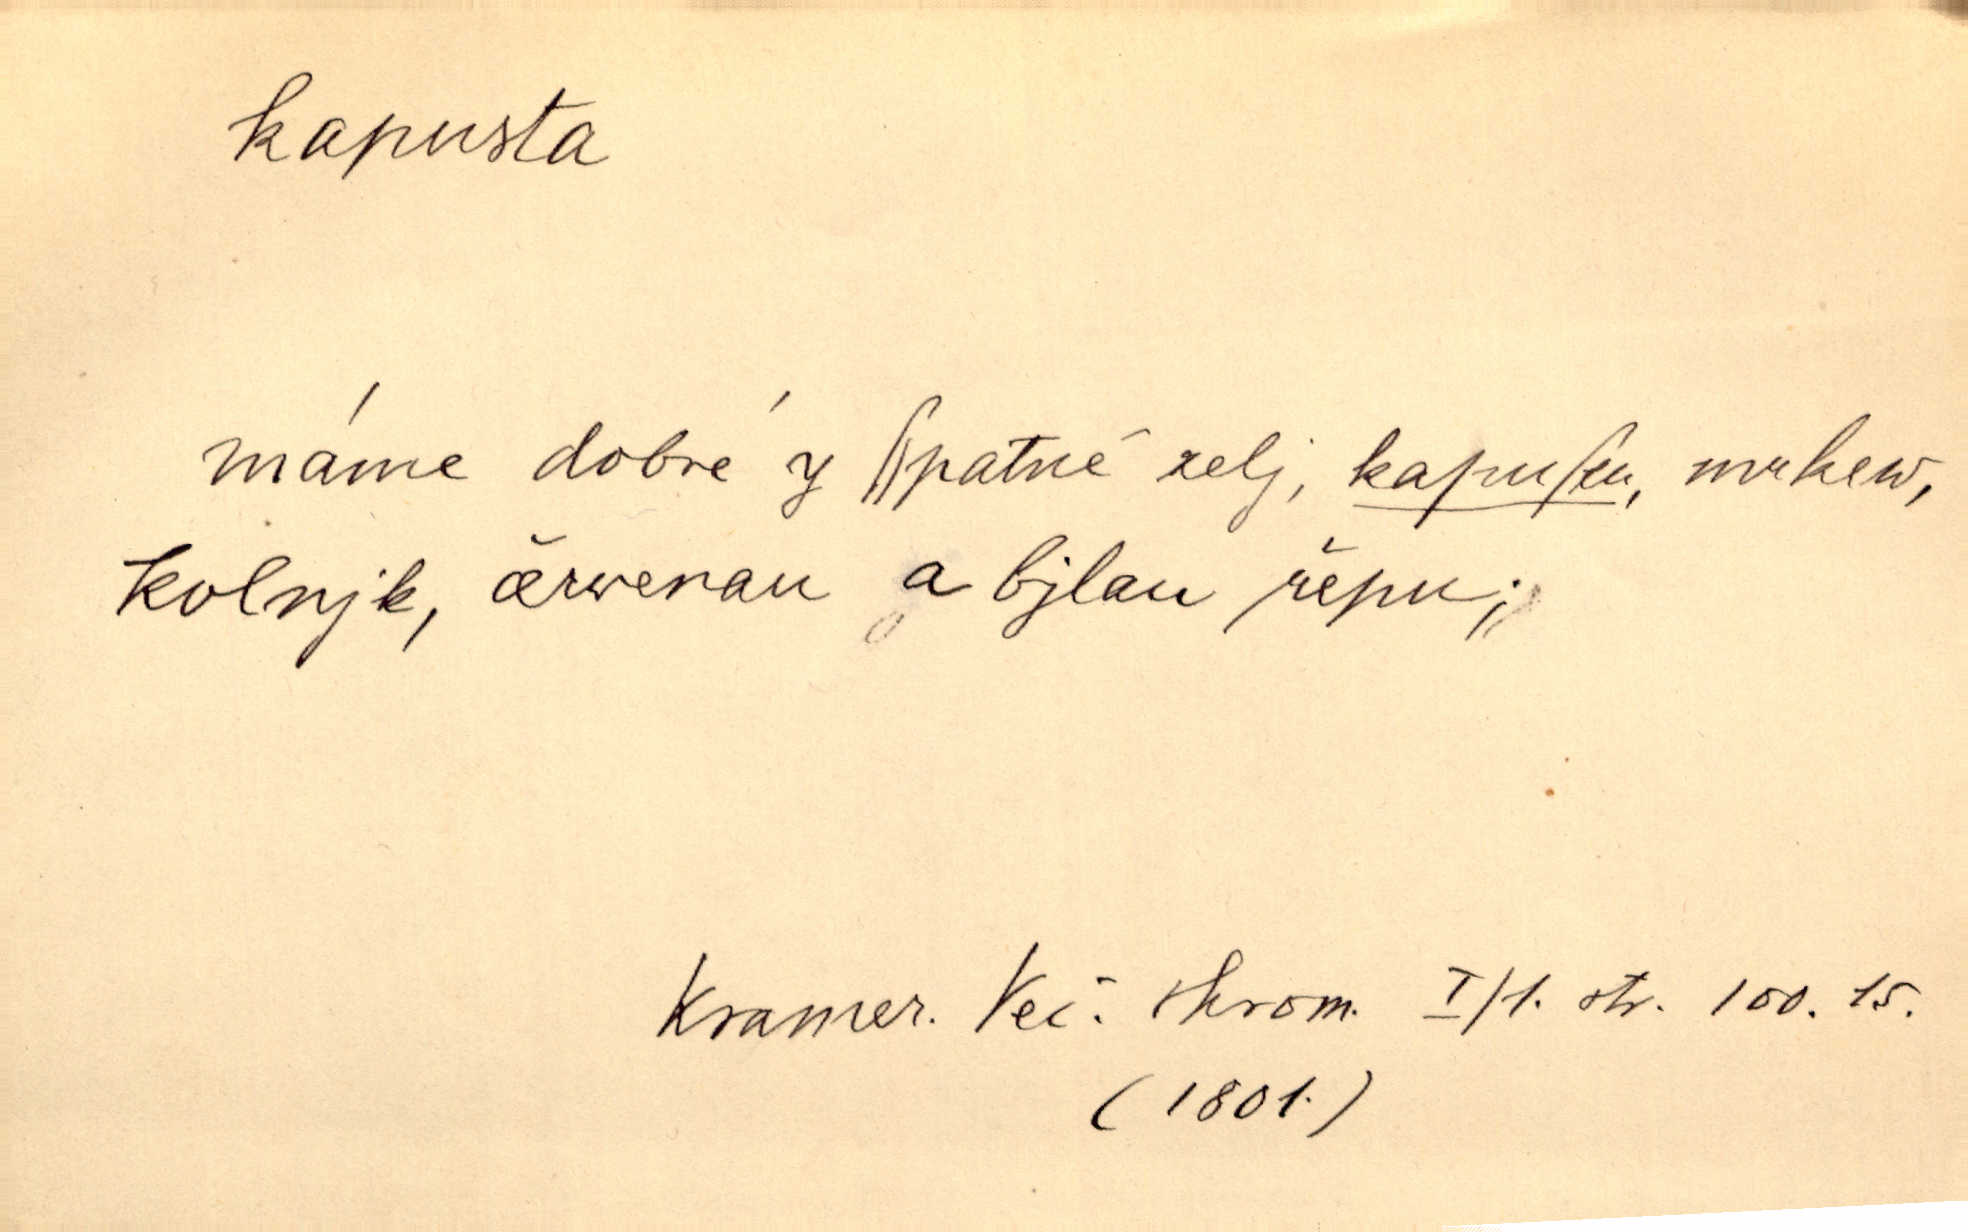 kapusta
máme dobré y ſſpatné zelj, kapuſtu, mrkew,
kolnjk, čerwenau a bjlau řepu;
Kramer. Več. shrom. I/1. str. 100. 15.
(1801.)